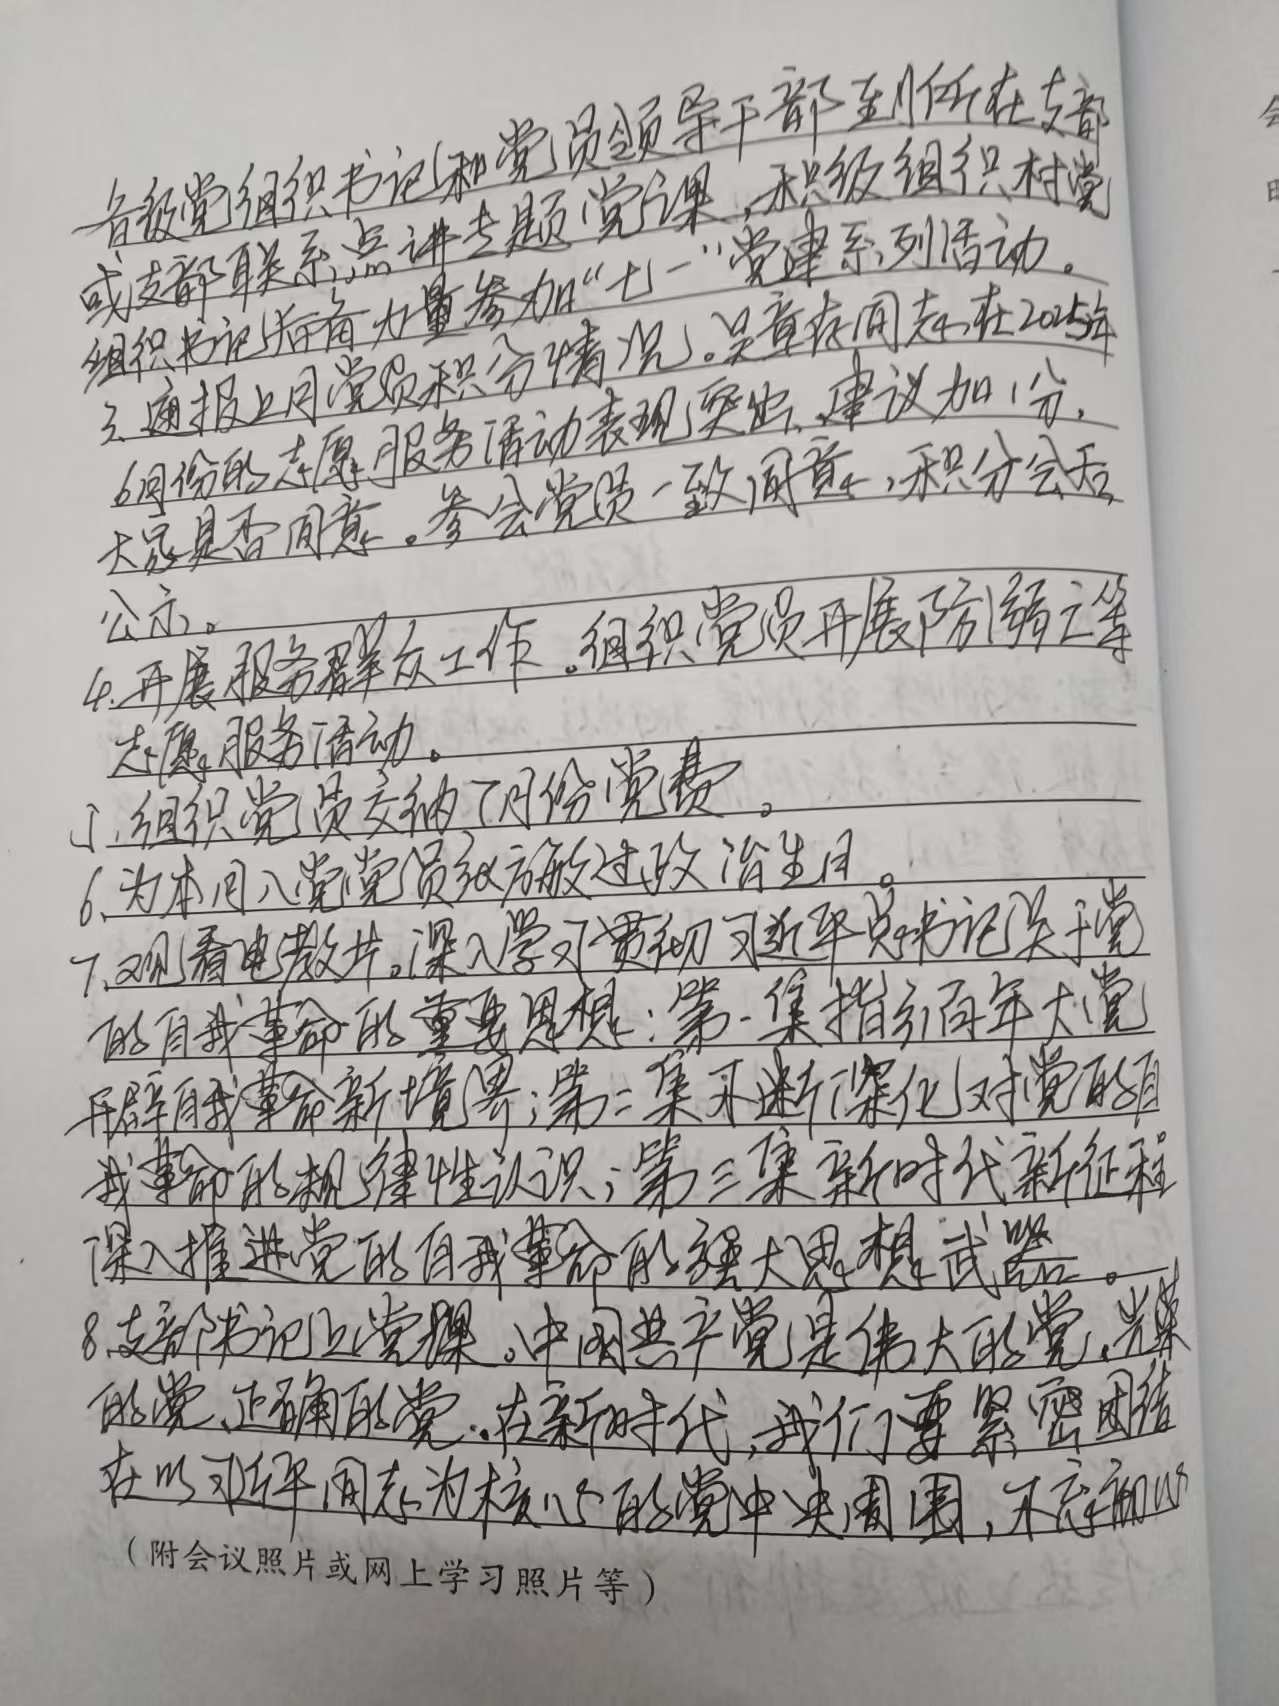 各级党组织书记和党员领导干部到所在支部
或支部联系点讲专题党课，积级组织村党
组织书记后备力量参加“七一”党建系列活动。
3、通报上月党员积分情况。吴章存同志在2025年
6月份的志愿服务活动表现突出、建议加1分，
大家是否同意。参会党员一致同意，积分会后
公示。
4、开展服务群众工作。组织党员开展防溺亡等
志愿服务活动。
5、组织党员交纳7月份党费。
6、为本月入党党员过政治生日。
7、观看电教片。深入学习贯彻习近平总书记关于党
的自我革命的重要思想：第一集指引百年大党
开辟自我革命新境界；第二集不断深化对党的自
我革命的规律性认识；第三集新时代新征程
深入推进党的自我革命的强大思想武器。
8、支部书记上党课。中国共产党是伟大的党、光荣
的党、正确的党。在新时代，我们要紧密团结
在以习近平同志为核心的党中央周围，不忘初心
（附会议照片或网上学习照片等）